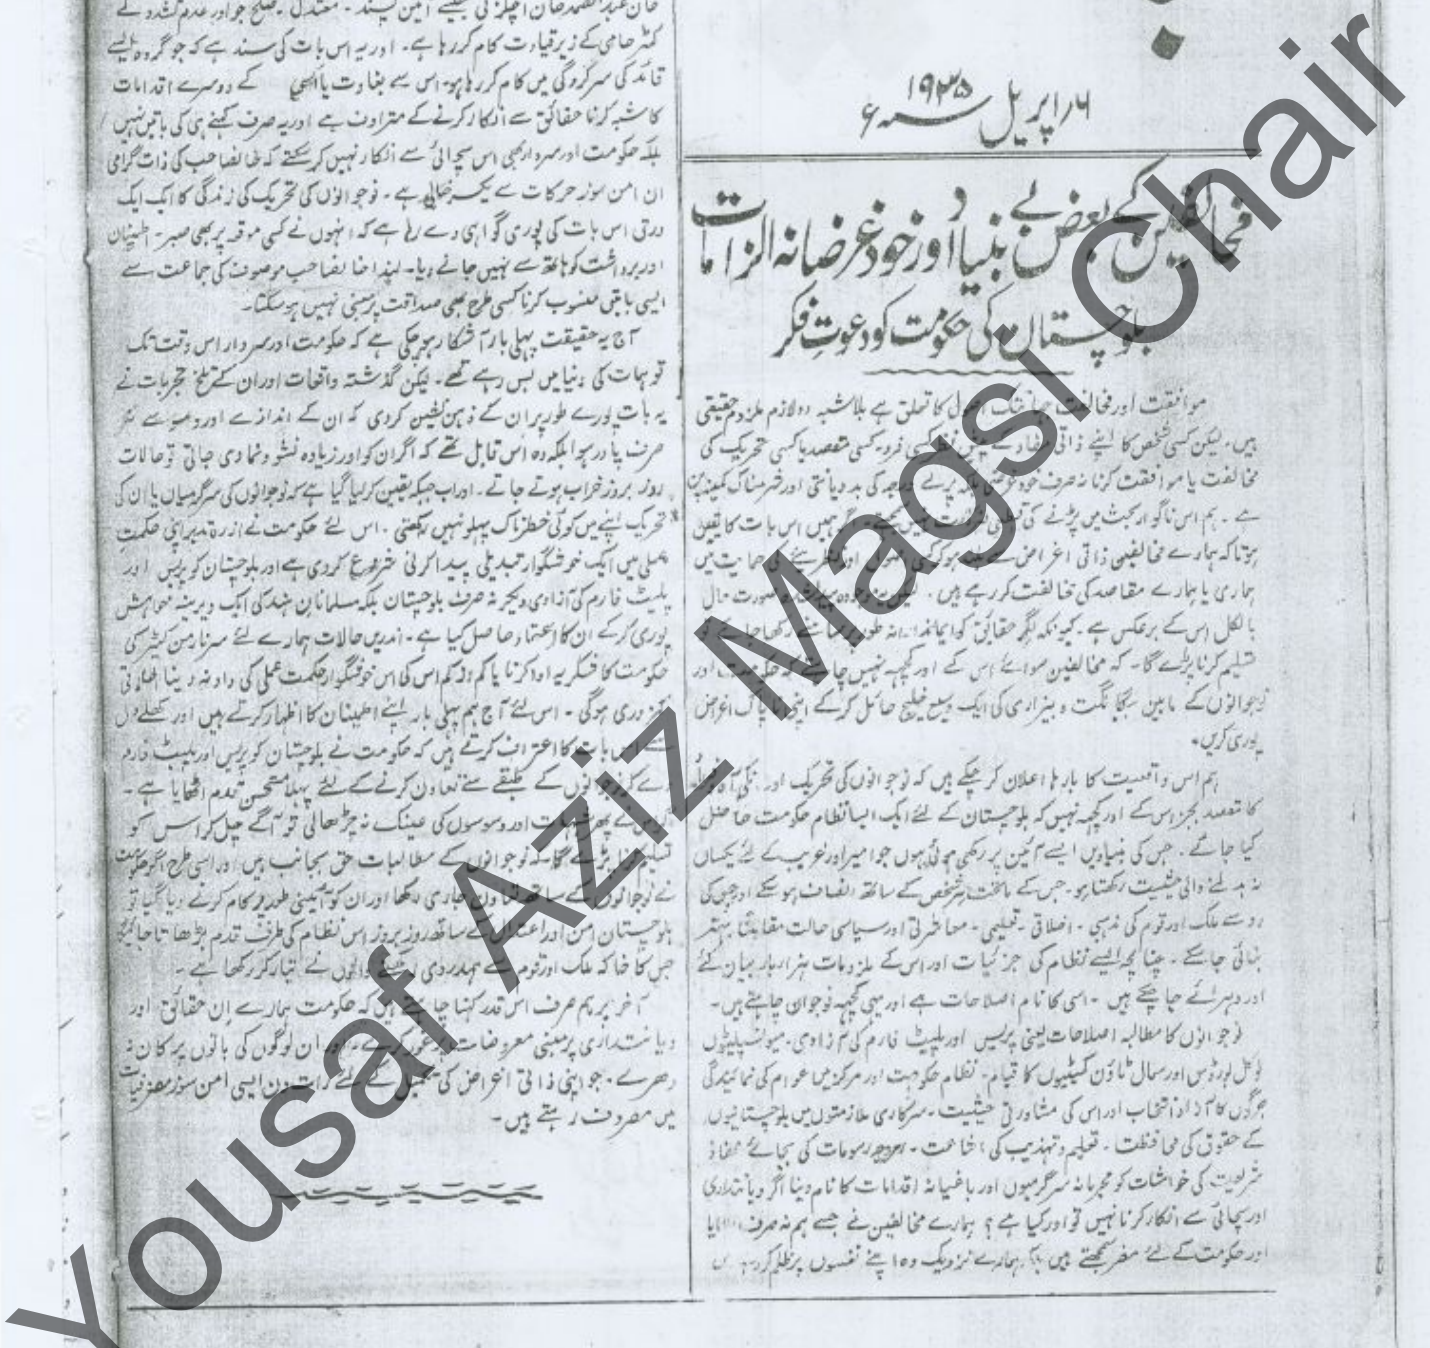 ۱۶ اپریل ۱۹۳۵ سنہ ء
مخالفین کے بعض بے بنیاد اور خود غرضانہ الزامات
بلوچستان کی حکومت کو دعوتِ فکر
موافقت اور مخالفت جہانتک اصول کا تعلق ہے بلاشبہ دو لازم ملزوم حقیقی
ہیں۔ لیکن کسی شخص کا اپنے ذاتی مفاد کے پیش نظر کسی فرد۔ کسی مقصد یا کسی تحریک کی
مخالفت یا موافقت کرنا نہ صرف خود غرضی بلکہ پرلے درجہ کی بددیانتی اور شرمناک کمینہ پن
ہے۔ ہم اس ناگوار بحث میں پڑنے کی ضرورت نہیں سمجھتے۔ اگر ہمیں اس بات کا یقین
ہوتا کہ ہمارے مخالفین ذاتی اغراض سے بلند ہو کر کسی اصول اور نظریئے کی حمایت میں
ہماری یا ہمارے مقاصد کی مخالفت کر رہے ہیں۔ لیکن موجودہ صورت حال
بالکل اس کے برعکس ہے۔ کیونکہ اگر حقائق کو ایماندارانہ طور پر سامنے رکھا جائے تو
تسلیم کرنا پڑے گا۔ کہ مخالفین سوائے اس کے اور کچھ نہیں چاہتے کہ حکومت اور
نوجوانوں کے مابین بیگانگت و بیزاری کی ایک وسیع خلیج حائل کر کے اپنی ناپاک اغراض
پوری کریں۔
ہم اس واقعیت کا بارہا اعلان کر چکے ہیں کہ نوجوانوں کی تحریک اور
کا مقصد بجز اس کے اور کچھ نہیں کہ بلوچستان کے لئے ایک ایسا نظام حکومت حاصل
کیا جائے۔ جس کی بنیادیں ایسے آئین پر رکھی ہوئی ہوں جو امیر اور غریب کے لئے یکساں
نہ بدلنے والی حیثیت رکھتا ہو۔ جس کے ماتحت ہر شخص کے ساتھ انصاف ہو سکے اور جس کی
رو سے ملک اور قوم کی مذہبی۔ اخلاقی۔ تعلیمی۔ معاشرتی اور سیاسی حالت مقابلتاً بہتر
بنائی جا سکے۔ چنانچہ ایسے نظام کی جزئیات اور اس کے ملزومات ہزار بار بیان کئے
اور دہرائے جا چکے ہیں۔ اسی کا نام اصلاحات ہے اور یہی کچھ نوجوان چاہتے ہیں۔
نوجوانوں کا مطالبہ اصلاحات یعنی پریس اور پلیٹ فارم کی آزادی۔ میونسپلیٹوں
لوکل بورڈس اور سمال ٹاؤن کمیٹیوں کا قیام۔ نظام حکومت اور مرکز میں عوام کی نمائندگی
جرگوں کا آزاد انتخاب اور اس کی مشاورتی حیثیت۔ سرکاری ملازمتوں میں بلوچستانیوں
کے حقوق کی محافظت۔ تعلیم و تہذیب کی اشاعت۔ مروجہ رسومات کی بجائے نفاذ
شریعت کی خواہشات کو مجرمانہ سرگرمیوں اور باغیانہ اقدامات کا نام دینا اگر دیانتداری
اور سچائی سے انکار کرنا نہیں تو اور کیا ہے؟ ہمارے مخالفین نے جسے ہم نہ صرف
اور حکومت کے لئے مضر سمجھتے ہیں بلکہ ہمارے نزدیک وہ اپنے نفسوں پر ظلم کر رہے ہیں
خان عبدالصمد خان اچکزئی جیسے آئین پسند۔ معتدل۔ صلح جو اور عدم تشدد کے
کٹر حامی کے زیر قیادت کام کر رہا ہے۔ اور یہ اس بات کی سند ہے کہ جو گروہ ایسے
قائد کی سرکردگی میں کام کر رہا ہو۔ اس سے بغاوت یا کے دوسرے اقدامات
کا شبہ کرنا حقائق سے انکار کرنے کے مترادف ہے اور یہ صرف کہنے ہی کی باتیں نہیں
بلکہ حکومت اور سردار بھی اس سچائی سے انکار نہیں کر سکتے کہ خانصاحب کی ذات گرامی
ان امن سوز حرکات سے یکسر خالی ہے۔ نوجوانوں کی تحریک کی زندگی کا ایک ایک
ورق اس بات کی پوری گواہی دے رہا ہے کہ انہوں نے کسی موقعہ پر بھی صبر۔ اطمینان
اور برداشت کو ہاتھ سے نہیں جانے دیا۔ لہذا خانصاحب موصوف کی جماعت سے
ایسی باتیں منسوب کرنا کسی طرح بھی صداقت پر مبنی نہیں ہو سکتا۔
آج یہ حقیقت پہلی بار آشکارا ہو چکی ہے کہ حکومت اور سردار اس وقت تک
توہمات کی دنیا میں بس رہے تھے۔ لیکن گذشتہ واقعات اور ان کے تلخ تجربات نے
یہ بات پورے طور پر ان کے ذہن نشین کر دی کہ ان کے اندازے اور وسوسے نہ
صرف پا در ہوا بلکہ وہ اس قابل تھے کہ اگر ان کو اور زیادہ نشوونما دی جاتی تو حالات
روز بروز خراب ہوتے جاتے۔ اور اب جبکہ یقین کر لیا گیا ہے کہ نوجوانوں کی سرگرمیاں یا ان کی
تحریک اپنے میں کوئی خطرناک پہلو نہیں رکھتی۔ اس لئے حکومت نے ازرہ تدبر اپنی حکمتِ
عملی میں ایک خوشگوار تبدیلی پیدا کرنی شروع کر دی ہے اور بلوچستان کو پریس اور
پلیٹ فارم کی آزادی دیکر نہ صرف بلوچستان بلکہ مسلمانان ہند کی ایک دیرینہ خواہش
پوری کر کے ان کا اعتماد حاصل کیا ہے۔ اندریں حالات ہمارے لئے سرنارمن کیٹر کی
حکومت کا شکریہ ادا کرنا یا کم از کم اس کی اس خوشگوار حکمت عملی کی داد نہ دینا اخلاقی
کمزوری ہوگی۔ اس لئے آج ہم پہلی بار اپنے اطمینان کا اظہار کرتے ہیں اور کھلے دل
سے اس بات کا اعتراف کرتے ہیں کہ حکومت نے بلوچستان کو پریس اور پلیٹ فارم
دے کر نوجوانوں کے طبقے سے تعاون کرنے کے لئے پہلا مستحسن قدم اٹھایا ہے۔
اگر اس نے پھر شبہات اور وسوسوں کی عینک نہ چڑھالی تو آگے چل کر اس کو
تسلیم کرنا پڑے گا۔ کہ نوجوانوں کے مطالبات حق بجانب ہیں اور اسی طرح اگر حکومت
نے نوجوانوں کے ساتھ تعاون جاری رکھا اور ان کو آئینی طور پر کام کرنے دیا گیا تو
بلوچستان امن اور اعتدال کے ساتھ روز بروز اس نظام کی طرف قدم بڑھاتا جائیگا
جس کا خاکہ ملک اور قوم سے ہمدردی رکھنے والوں نے تیار کر رکھا ہے۔
آخر پر ہم صرف اس قدر کہنا چاہتے ہیں کہ حکومت ہمارے ان حقائق اور
دیانتداری پر مبنی معروضات پر غور کرے۔ اور ان لوگوں کی باتوں پر کان نہ
دھرے۔ جو اپنی ذاتی اغراض کی تکمیل کے لئے رات دن ایسی امن سوز مصروفیات
میں مصروف رہتے ہیں۔
Yousaf Aziz Magsi Chair